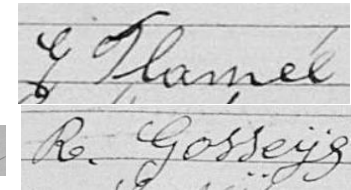 G Flamee
R. Gosseijs